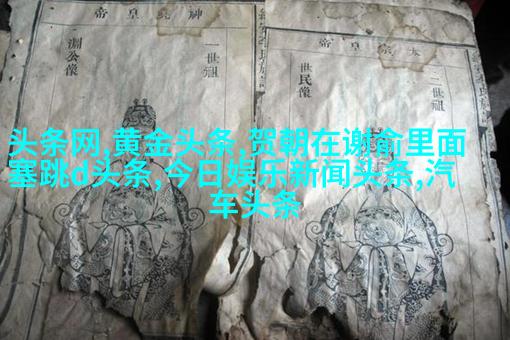 二世祖
世民像
神堯皇帝
一世祖
淵公像
头条网,黄金头条,贺朝在谢俞里面
塞跳d头条,今日娱乐新闻头条,汽
车头条